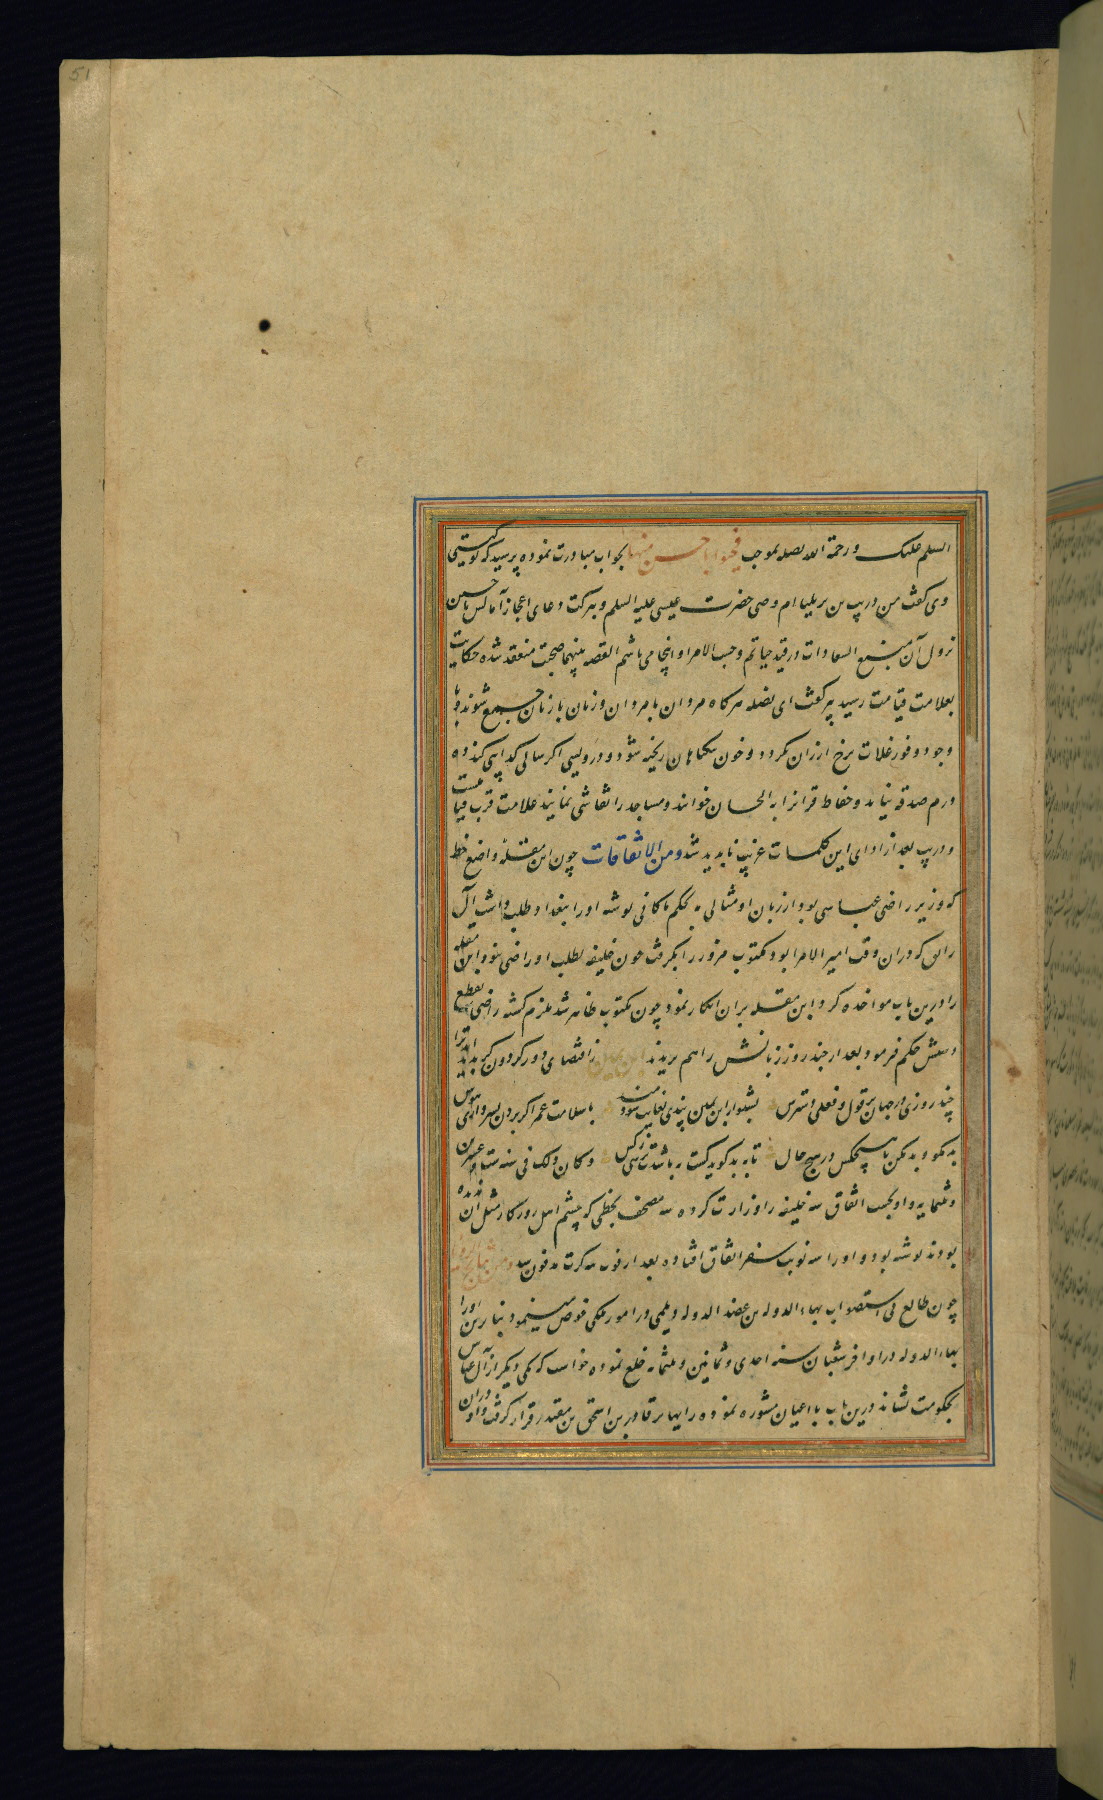 51
السلم علیک و رحمة الله نضله بموجب فحیوا باحسن منها بجواب مبادرت نموده پرسید که تو کیستی
وی گفت من دریب بن برثلیا ام وصی حضرت عیسی علیه السلم و ببرکت دعای اعجاز آن حسین
نزول آن منبع السعادات در قید حیاتم و حسب الامر او اینجا می باشم القصه بینهما صحبت منعقد شده حکایت
بعلامت قیامت رسید پیر گفت ای نضله هرگاه مردان با مردان و زنان با زنان جمع شوند و با
وجود وفور غلات نرخ ارزان نگردد و خون بیگناهان ریخته شود و درویشی اگر سالی گدایی کند ده
درم صدقه نیابد و حفاظ قرانرا به الحان خوانند و مساجد را نقاشی نمایند علامت قرب قیامتست
و دریب بعد از ادای این کلمات غریب ناپدید شد ومن الاتفاقات چون ابن مقله واضع خط
که وزیر راضی عباسی بود از زبان او مثالی به بجکم ماکانی نوشته اورا ببغداد طلب داشت
رایق که دران وقت امیر الامرا بود مکتوب مزور را بگرفت چون خلیفه بطلب او راضی نبود ابن مقله
را درین باب مواخذه کرد ابن مقله بران انکار نمود چون مکتوب ظاهر شد ملزم گشته راضی بقطع
دستش حکم فرمود بعد از چند روز زبانش را هم بریدند ابن یمین ز اقتضای دور گردون گر بدید آید ترا
چند روزی در جهان بر قول و فعلی دسترس بشنو از ابن یمین پندی بغایت سودمند با سلامت عمر اگر بردن بسر داری هوس
بد مگو و بد مکن با هیچکس در هیچ حال تا نه بد گوید کست نه باشدت ترسی ز کس و کان ذلک فی سنه ست و عشرین
و ثلثمایه و او بحسب اتفاق سه خلیفه را وزارت کرده سه مصحف بخطی که چشم اهل روزگار مثل آن ندیده
بودند نوشته بود و اورا سه نوبت سفر اتفاق افتاده بعد از فوت سه کرت مدفون شد
چون طایع بی استصواب بهاء الدوله بن عضد الدوله دیلمی در امور ملکی خوض مینمود بنابرین اورا
بهاء الدوله در اواخر شعبان سنه احدی و ثمانین و ثلثمایه خلع نموده خواست که یکی دیگر از آل عباس
بحکومت نشاند درین باب با اعیان مشوره نموده رایها بر قادر بن اسحق بن مقتدر قرار گرفت و او دران